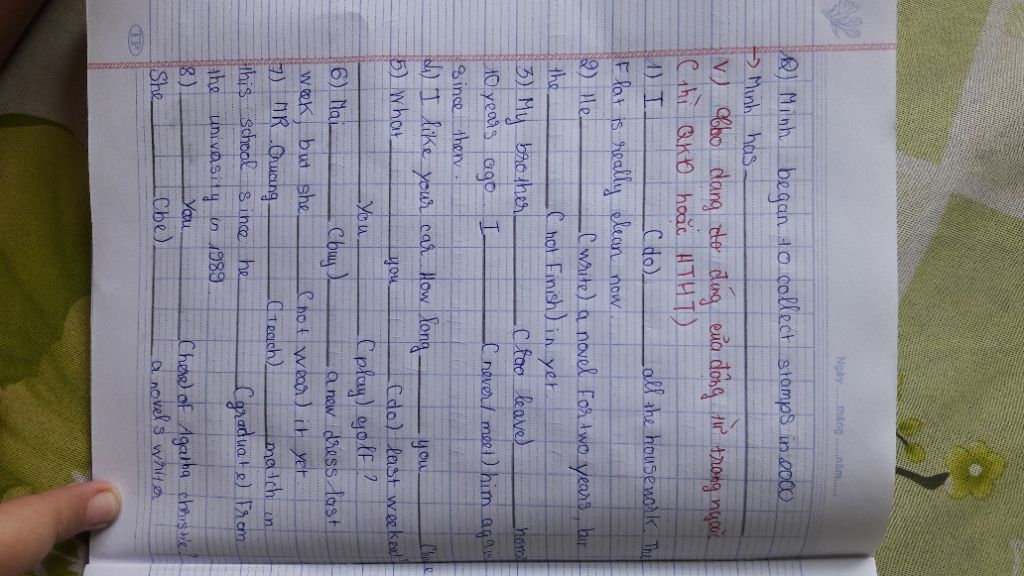 Ngày ..... tháng ..... năm .....
10) Minh began to collect stamps in 2000
→ Minh has
V) Cho dạng đúng của động từ trong ngoặc
( thì QKĐ hoặc HTHT )
1) I ( do ) all the housework. The
Flat is really clean now.
2) He ( write ) a novel for two years, but
the ( not finish ) in yet.
3) My brother ( leave ) home
10 years ago. I ( never / meet ) him again
since then.
4) I like your car. How long you
5) What you ( do ) last weekend
You ( play ) golf?
6) Mai ( buy ) a new dress last
week, but she ( not wear ) it yet
7) MR Quang ( teach ) match in
this school since he ( graduate ) From
the univasity in 1989.
8) you ( hear ) of Agatha christie?
She ( be ) a novels writer
TP